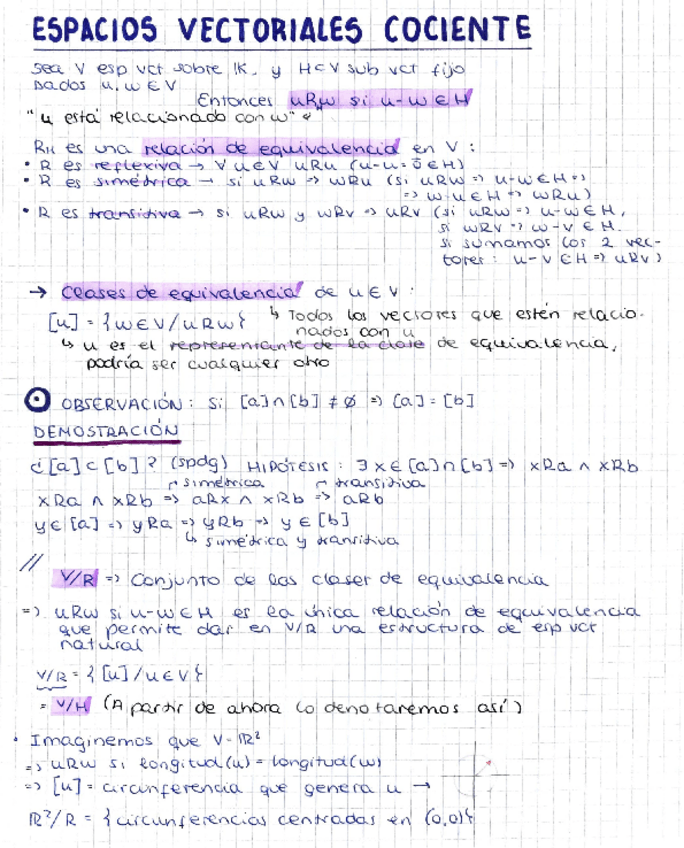 ESPACIOS VECTORIALES COCIENTE
Sea V esp vct sobre IK, y H⊂V sub vct fijo
Dados u, w ∈ V
Entonces uRw si u-w ∈ H
"u está relacionado con w"
RH es una relación de equivalencia en V :
• R es reflexiva → ∀ u∈V uRu (u-u=0̄∈H)
• R es simétrica → si uRw => wRu (si uRw => u-w∈H =>
=> w-u∈H => wRu)
• R es transitiva → si uRw y wRv => uRv (si uRw => u-w∈H,
si wRv => w-v∈H.
Si sumamos los 2 vec-
tores: u-v∈H => uRv)
→ Clases de equivalencia de u∈V :
[u] = {w∈V/uRw} ↳ Todos los vectores que estén relacio-
nados con u
↳ u es el representante de la clase de equivalencia,
podría ser cualquier otro
OBSERVACIÓN: Si [a]∩[b] ≠ ∅ => [a] = [b]
DEMOSTRACIÓN
¿[a]⊂[b]? (spdg) HIPÓTESIS: ∃x∈[a]∩[b] => xRa ∧ xRb
simétrica transitiva
xRa ∧ xRb => aRx ∧ xRb => aRb
y∈[a] => yRa => yRb => y∈[b]
↳ simétrica y transitiva
//
V/R => Conjunto de las clases de equivalencia
=> uRw si u-w∈H es la única relación de equivalencia
que permite dar en V/R una estructura de esp vct
natural
V/R = {[u]/u∈V}
= V/H (A partir de ahora lo denotaremos así)
• Imaginemos que V=IR²
=> uRw si longitud(u) = longitud(w)
=> [u] = circunferencia que genera u →
IR²/R = {circunferencias centradas en (0,0)}